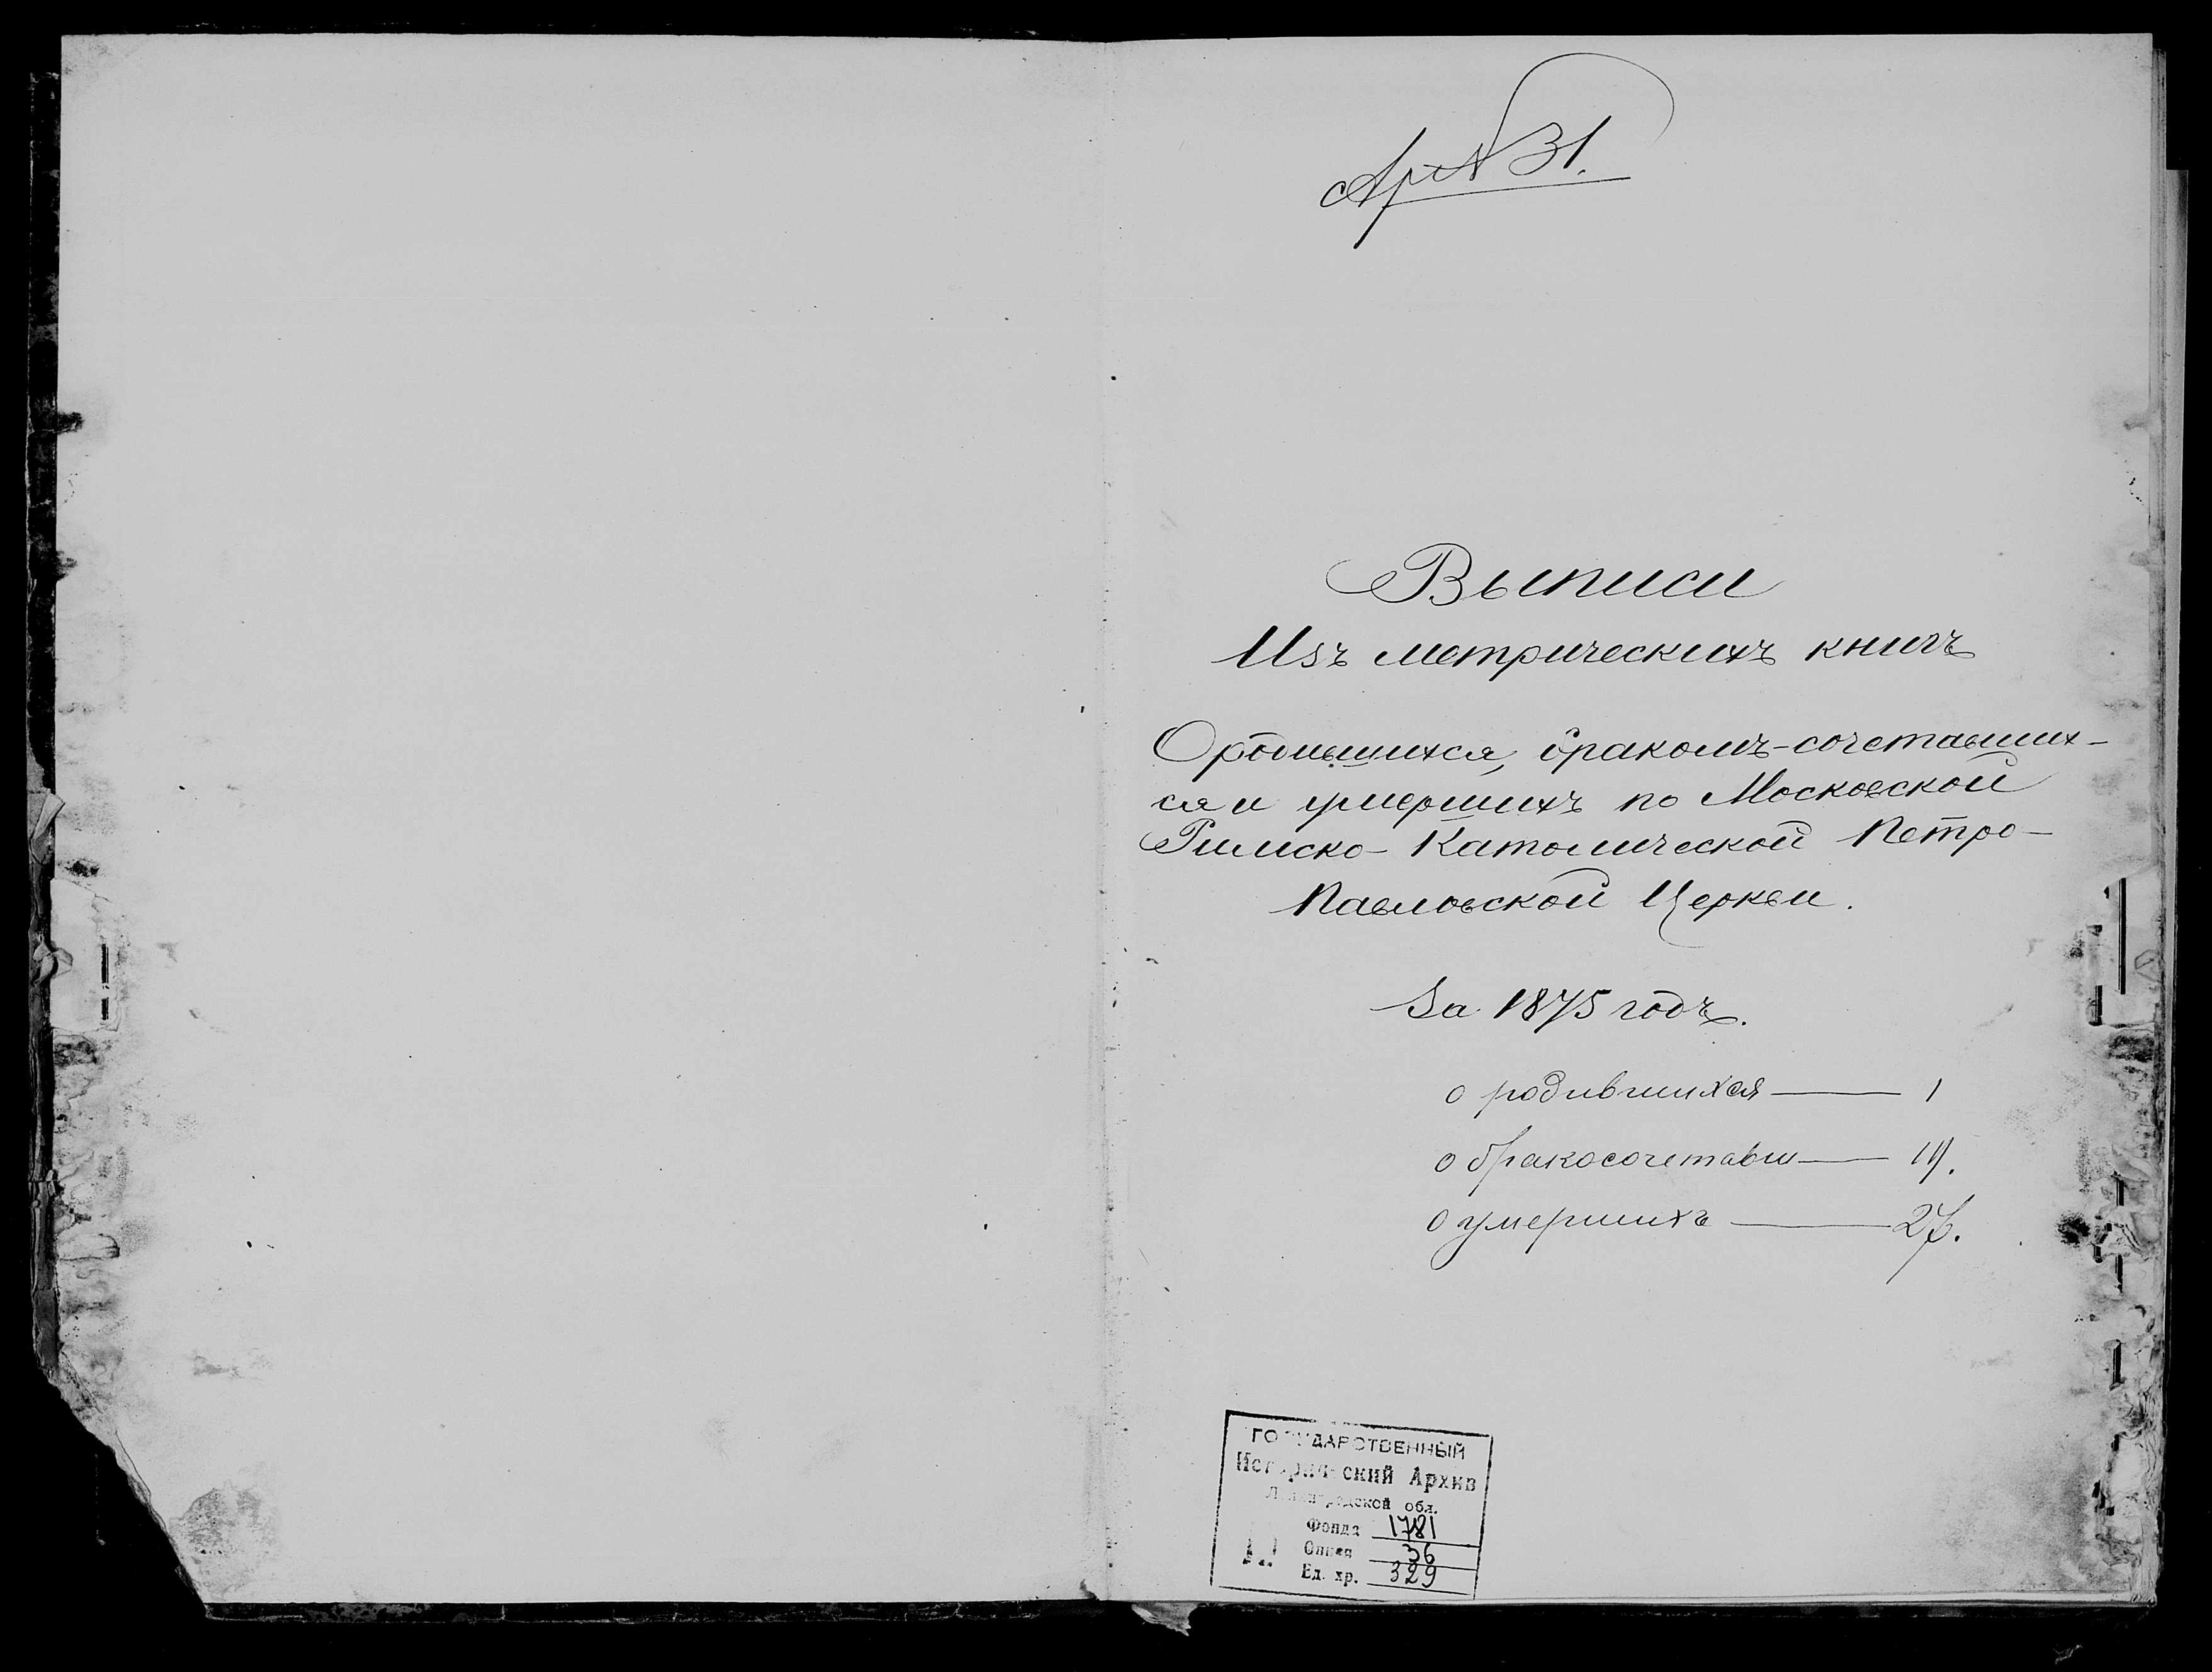 Ар № 31.
Выписи
Изъ метрическихъ книгъ
О родившихся, бракомъ-сочетавших-
ся и умершихъ по Московской
Римско-Католической Петро-
Павловской Церкви.
За 1875 годъ.
о родившихся — 1
о бракосочетавш —
о умершихъ —
ГОСУДАРСТВЕННЫЙ
Исторический Архив
Ленинградской обл.
Фонда 1781
Опись 36
Ед. хр. 329